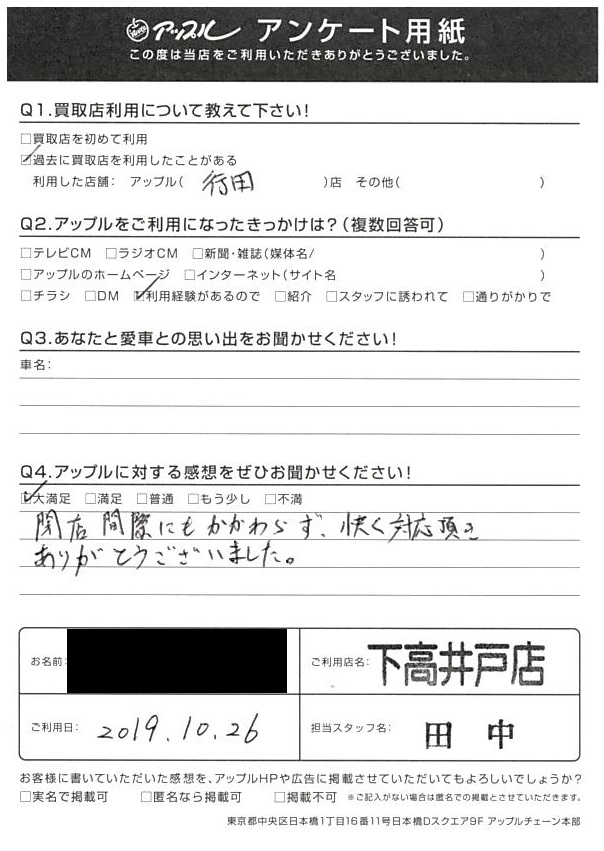 アップル アンケート用紙
この度は当店をご利用いただきありがとうございました。
Q1.買取店利用について教えて下さい!
□買取店を初めて利用
☑過去に買取店を利用したことがある
利用した店舗: アップル( 行田 )店 その他( )
Q2.アップルをご利用になったきっかけは?(複数回答可)
□テレビCM □ラジオCM □新聞・雑誌(媒体名/ )
□アップルのホームページ □インターネット(サイト名 )
□チラシ □DM ☑利用経験があるので □紹介 □スタッフに誘われて □通りがかりで
Q3.あなたと愛車との思い出をお聞かせください!
車名:
Q4.アップルに対する感想をぜひお聞かせください!
☑大満足 □満足 □普通 □もう少し □不満
閉店間際にもかかわらず、快く対応頂き
ありがとうございました。
お名前:
ご利用店名: 下高井戸店
ご利用日: 2019.10.26
担当スタッフ名: 田中
お客様に書いていただいた感想を、アップルHPや広告に掲載させていただいてもよろしいでしょうか?
□実名で掲載可 □匿名なら掲載可 □掲載不可 ※ご記入がない場合は匿名での掲載とさせていただきます。
東京都中央区日本橋1丁目16番11号日本橋Dスクエア9F アップルチェーン本部